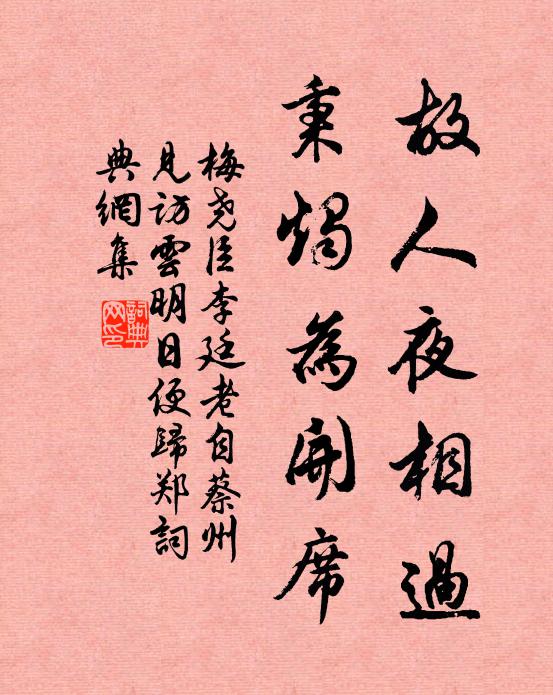 故人夜相過
秉燭為開席
梅堯臣李廷老自蔡州
見訪雲明日便歸郑詞
典網集
詞典
网印